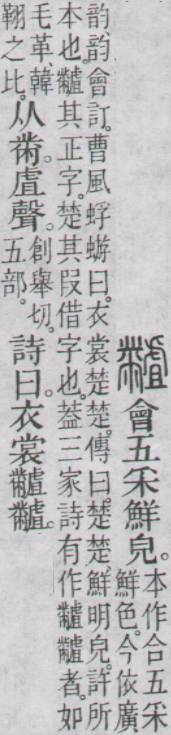 𪓐會五采鮮皃。本作合五采
鮮色。今依廣
韵、韵會訂。曹風蜉蝣曰。衣裳楚楚。傳曰。楚楚、鮮明皃。許所
本也。𪓐其正字。楚其叚借字也。葢三家詩有作𪓐𪓐者。如
毛革、韓
䎒之比。从黹。虘聲。創舉切。
五部。詩曰。衣裳𪓐𪓐。